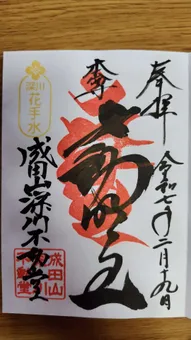 奉拝
令和七年二月十九日
本尊
不動明王
深川
花手水
成田山深川不動堂
成田山